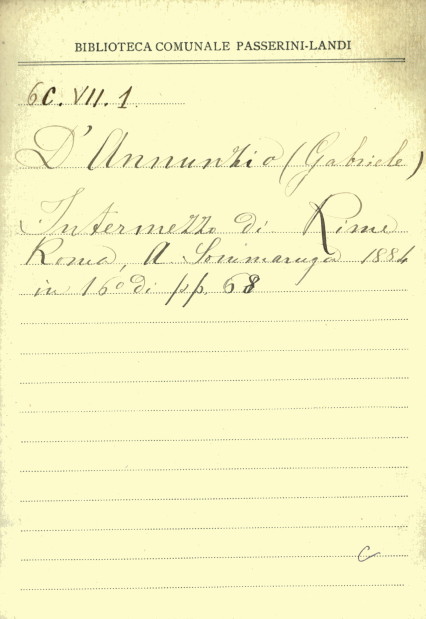 BIBLIOTECA COMUNALE PASSERINI-LANDI
6C. VII. 1.
D'Annunzio (Gabriele)
Intermezzo di Rime
Roma, A. Sommaruga 1884
in 16° di pp. 68
C